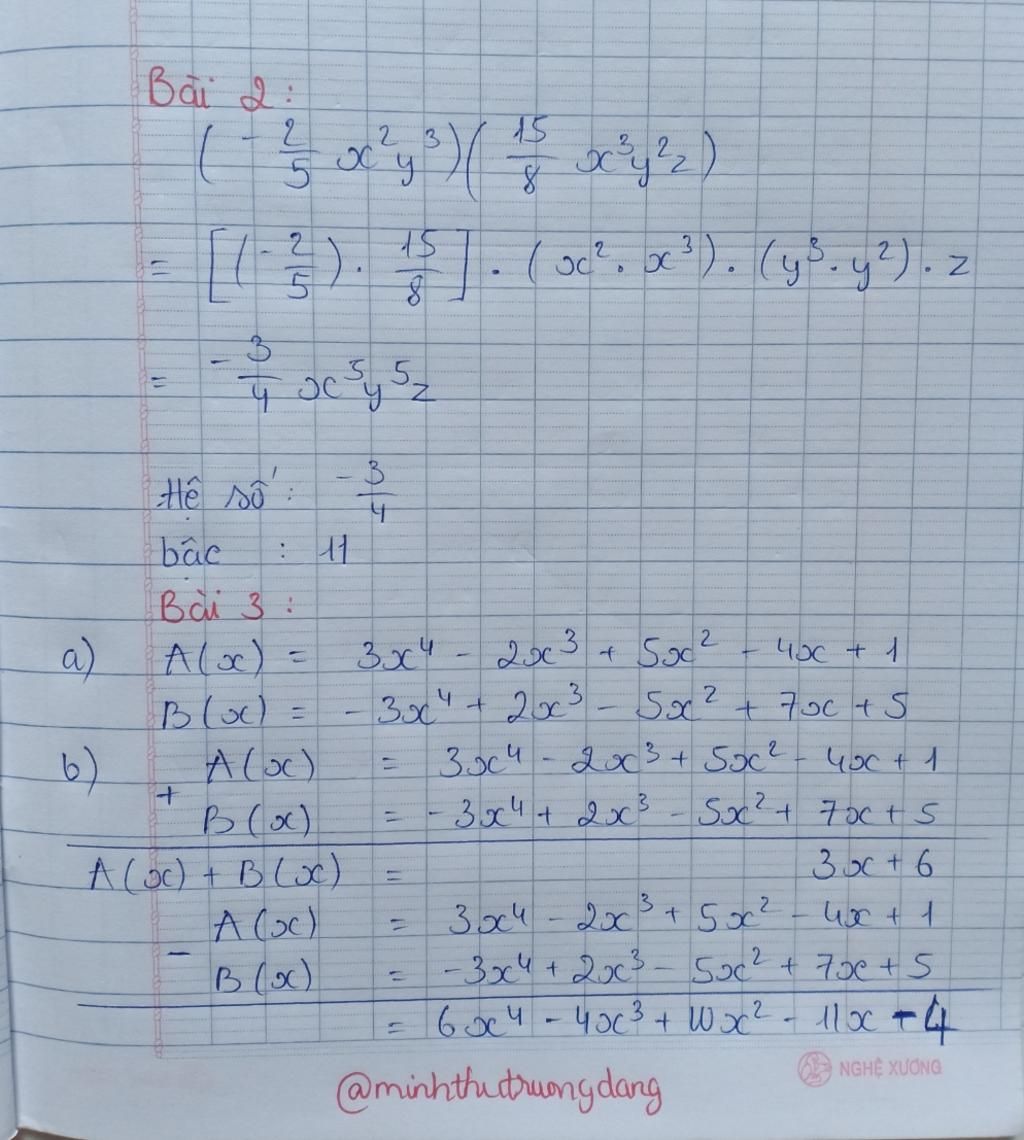 Bài 2:
(-2/5 x²y³)(15/8 x³y²z)
= [(-2/5) . 15/8] . (x² . x³) . (y³ . y²) . z
= -3/4 x⁵y⁵z
Hệ số : -3/4
bậc : 11
Bài 3 :
a) A(x) = 3x⁴ - 2x³ + 5x² - 4x + 1
B(x) = -3x⁴ + 2x³ - 5x² + 7x + 5
b) A(x) = 3x⁴ - 2x³ + 5x² - 4x + 1
+
B(x) = -3x⁴ + 2x³ - 5x² + 7x + 5
A(x) + B(x) = 3x + 6
A(x) = 3x⁴ - 2x³ + 5x² - 4x + 1
-
B(x) = -3x⁴ + 2x³ - 5x² + 7x + 5
= 6x⁴ - 4x³ + 10x² - 11x - 4
NGHỆ XƯƠNG
@minhthutruongdang